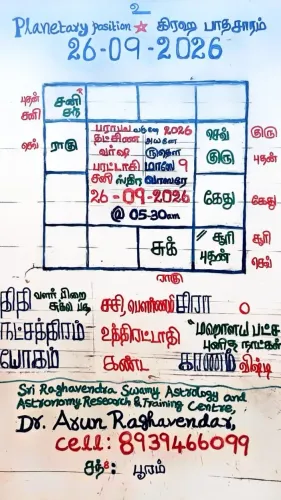 உ
Planetary position ☆ கிரஹ பாதசாரம்
26-09-2026
புதன்
சனி
சனி
சந்
செவ்
ராகு
பராபவ வருஷ 2026
தட்சிண அயனே
வர்ஷ ருதௌ
புரட்டாதி மாஸே 9
சனி ஸ்திர வாஸரே
26-09-2026
@ 05-30am
செவ்
குரு
குரு
புதன்
கேது
கேது
சுக்
சூரி
புதன்
சூரி
செவ்
ராகு
திதி வளர் பிறை
சுக்ல பக்ஷ
நட்சத்திரம் உத்திரட்டாதி
"மஹாளய பட்ச
புனித நாட்கள்
யோகம் கண்ட கரணம் விஷ்டி
Sri Raghavendra Swamy Astrology and
Astronomy Research & Training Centre,
Dr. Arun Raghavendar,
cell: 8939466099
சந்8: பூரம்